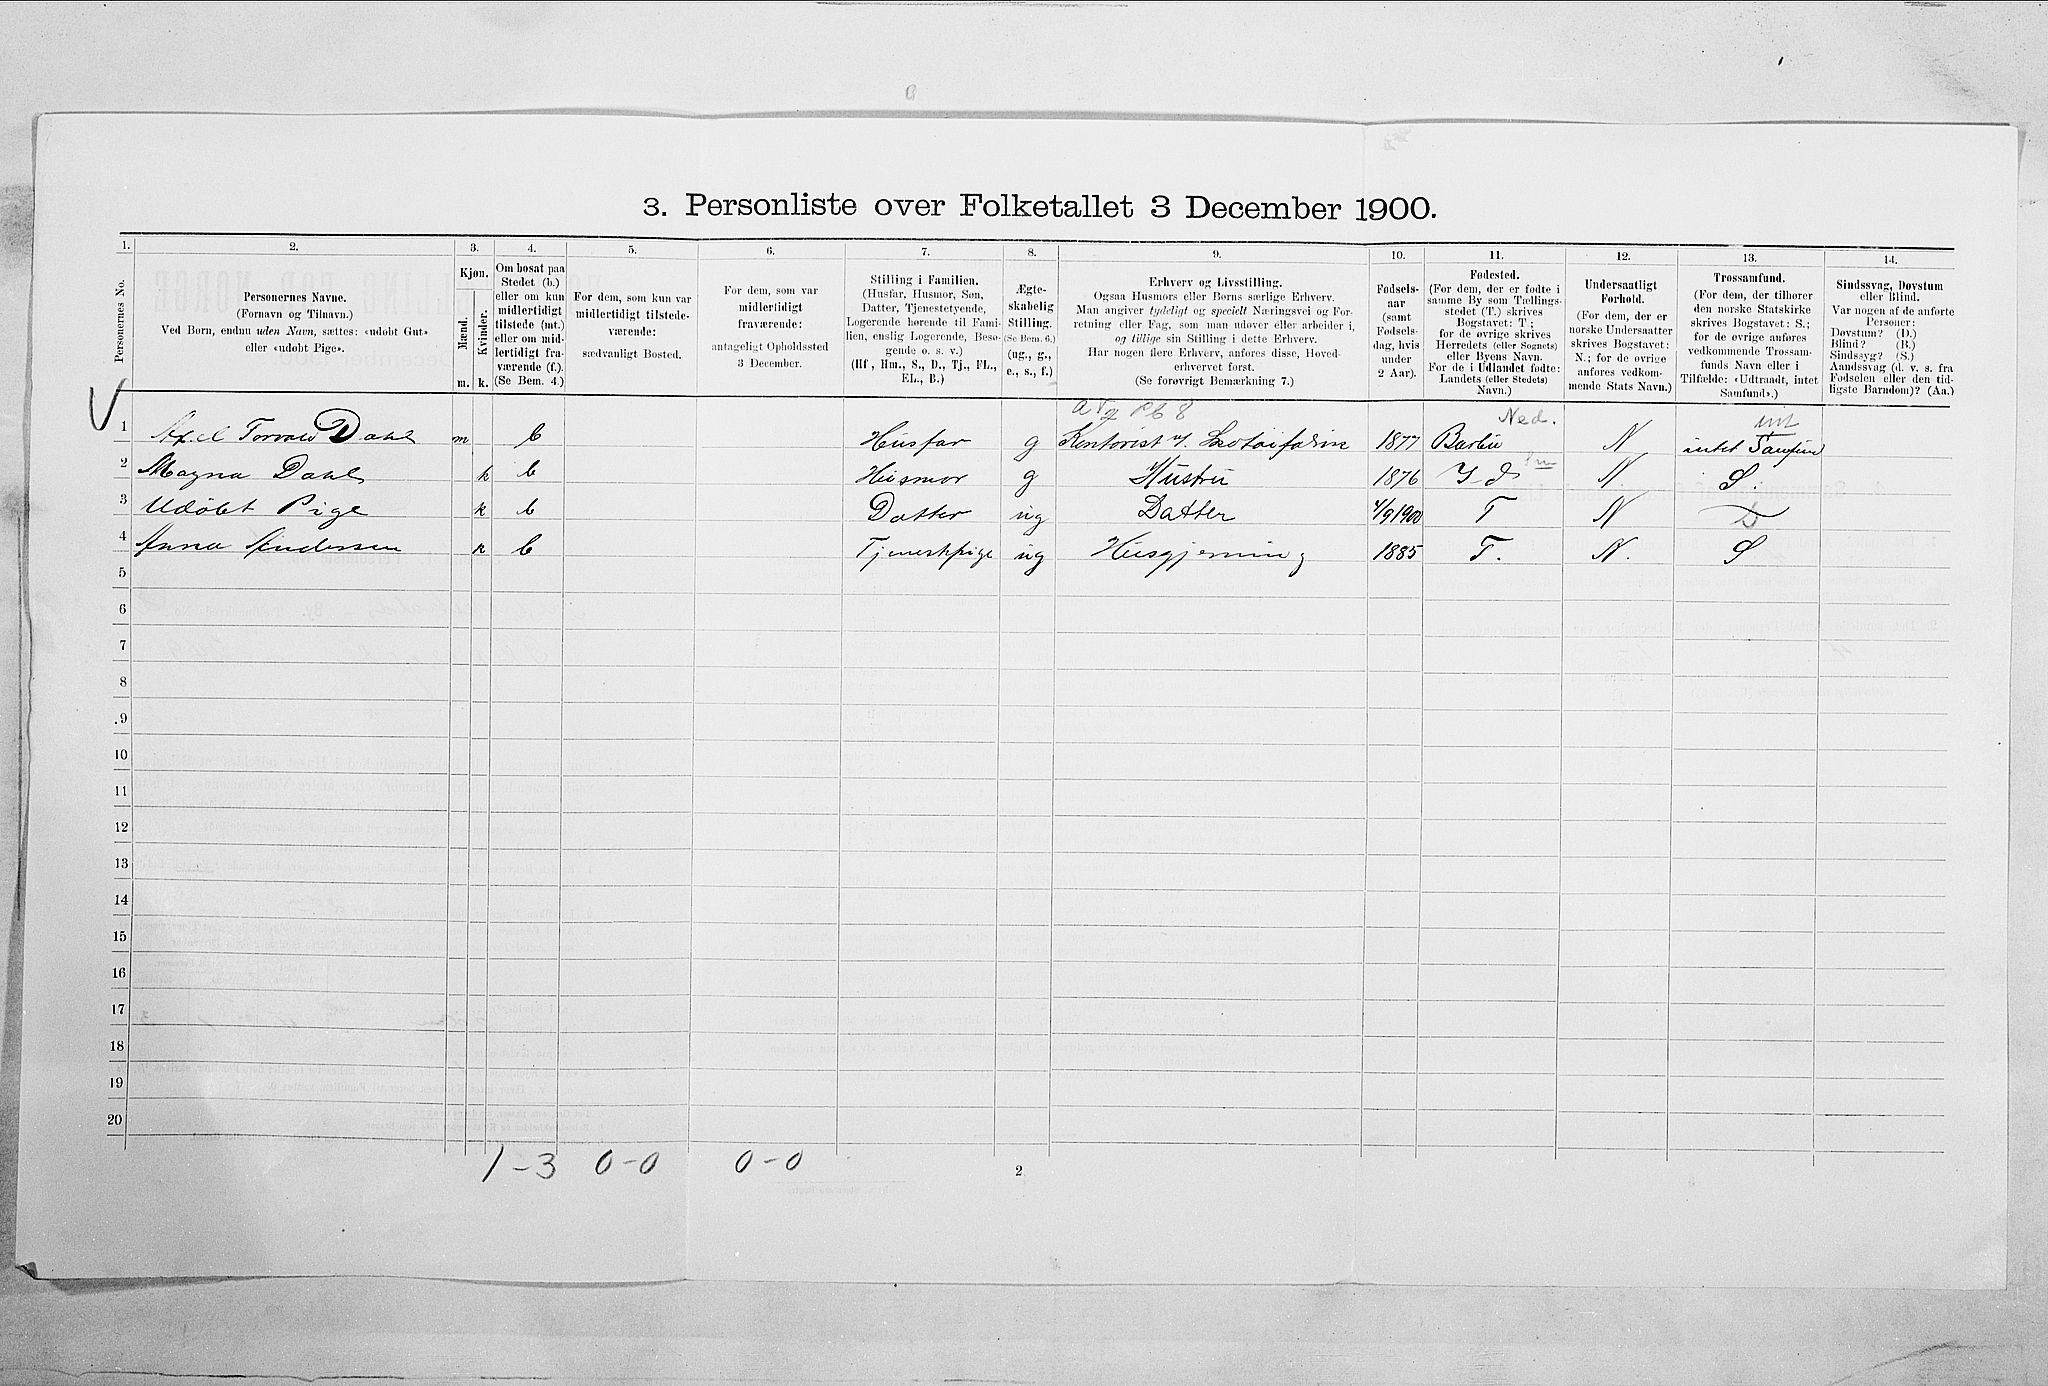 3. Personliste over Folketallet 3 December 1900.
1. 2. 3. 4. 5. 6. 7. 8. 9. 10. 11. 12. 13. 14.
Personernes No.
Personernes Navne.
(Fornavn og Tilnavn.)
Ved Børn, endnu uden Navn, sættes: «udøbt Gut»
eller «udøbt Pige».
Kjøn.
Mænd.
Kvinder.
m. k.
Om bosat paa
Stedet (b.)
eller om kun
midlertidigt
tilstede (mt.)
eller om mid-
lertidigt fra-
værende (f.).
(Se Bem. 4.)
For dem, som kun var
midlertidigt tilstede-
værende:
sædvanligt Bosted.
For dem, som var
midlertidigt
fraværende:
antageligt Opholdssted
3 December.
Stilling i Familien.
(Husfar, Husmor, Søn,
Datter, Tjenestetyende,
Logerende hørende til Fami-
lien, enslig Logerende, Besø-
gende o. s. v.)
(Hf., Hm., S., D., Tj., FL.,
EL., B.)
Ægte-
skabelig
Stilling.
(Se Bem. 6.)
(ug., g.,
e., s., f.)
Erhverv og Livsstilling.
Ogsaa Husmors eller Børns særlige Erhverv.
Man angiver tydeligt og specielt Næringsvei og For-
retning eller Fag, som man udover eller arbeider i,
og tillige sin Stilling i dette Erhverv.
Har nogen flere Erhverv, anføres disse, Hoved-
erhvervet først.
(Se forøvrigt Bemærkning 7.)
Fødsels-
aar
(samt
Fødsels-
dag, hvis
under
2 Aar).
Fødested.
(For dem, der er fødte i
samme By som Tællings-
stedet (T.) skrives
Bogstavet: T.;
for de øvrige skrives
Herredets (eller Sognets)
eller Byens Navn.
For de i Udlandet fødte:
Landets (eller Stedets)
Navn.)
Undersaatligt
Forhold.
(For dem, der er
norske Undersaatter
skrives Bogstavet:
N.; for de øvrige
anføres vedkom-
mende Stats Navn.)
Trossamfund.
(For dem, der tilhører
den norske Statskirke
skrives Bogstavet: S.;
for de øvrige anføres
vedkommende Trossam-
funds Navn eller i
Tilfælde: «Udtraadt, intet
Samfund».)
Sindssvag, Døvstum
eller Blind.
Var nogen af de anførte
Personer:
Døvstum? (D.)
Blind? (B.)
Sindssyg? (S.)
Aandssvag (d. v. s. fra
Fødselen eller den tid-
ligste Barndom)? (Aa.)
Ned. int
1 Axel Torvald Dahl m b Husfar g Kontorist 1877 Barbu N intet Samfund
2 Magna Dahl k b Husmor g Hustru 1876 N. S.
3 Udøbt Pige k b Datter ug Datter 4/9 1900 T N
4 Anna Andersen k b Tjenestpige ug Husgjerning 1885 T. N. S
5
6
7
8
9
10
11
12
13
14
15
16
17
18
19
20
1-3 0-0 0-0
2